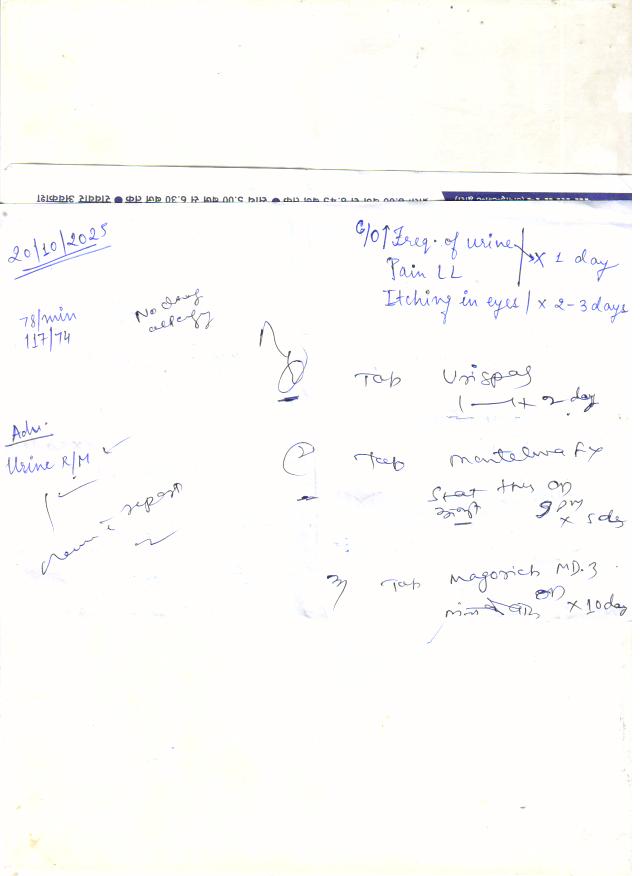 20/10/2025
C/O ↑ Freq. of urine x 1 day
Pain LL
Itching in eyes / x 2-3 days
78/min
117/74
No drug allergy
Tab Urispas
1 — 1 x 2 day
Adv.
Urine R/M
report
2 Tab Monteleva FX
Stat then OD
9 pm
x 5 day
3) Tab Magorich MD.3
OD
x 10 day